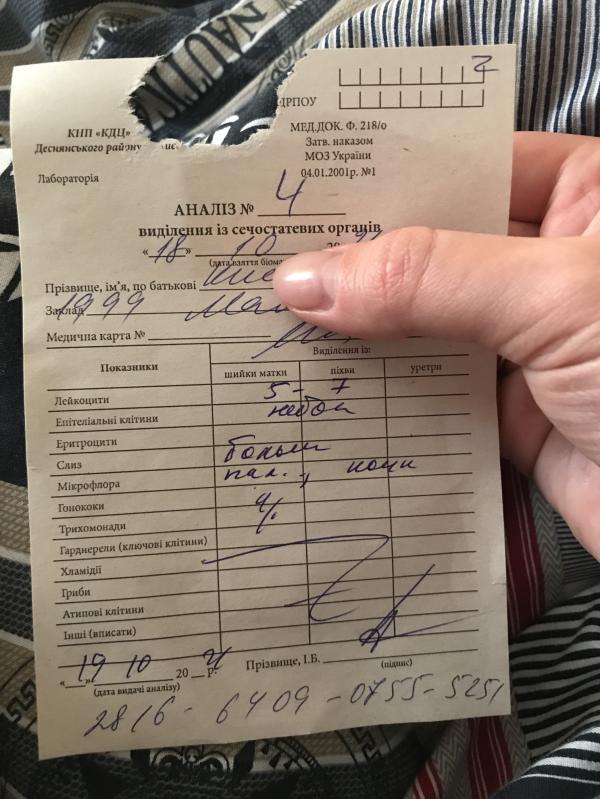 2
ДРПОУ
КНП «КДЦ»
Деснянського району
МЕД.ДОК. Ф. 218/о
Затв. наказом
МОЗ України
04.01.2001р. №1
Лабораторія
АНАЛІЗ № 4
виділення із сечостатевих органів
«18» 10 20
(дата взяття
Прізвище, ім'я, по батькові
Заклад 1999
Медична карта №
Показники
Виділення із:
шийки матки піхви уретри
Лейкоцити 5-7
Епітеліальні клітини небол
Еритроцити
Слиз больш
Мікрофлора пал., коки
Гонококи
Трихомонади
Гарднерели (ключові клітини)
Хламідії
Гриби
Атипові клітини
Інші (вписати)
«19» 10 20 р. Прізвище, І.Б.
(дата видачі аналізу) (підпис)
2816-6409-0755-5251